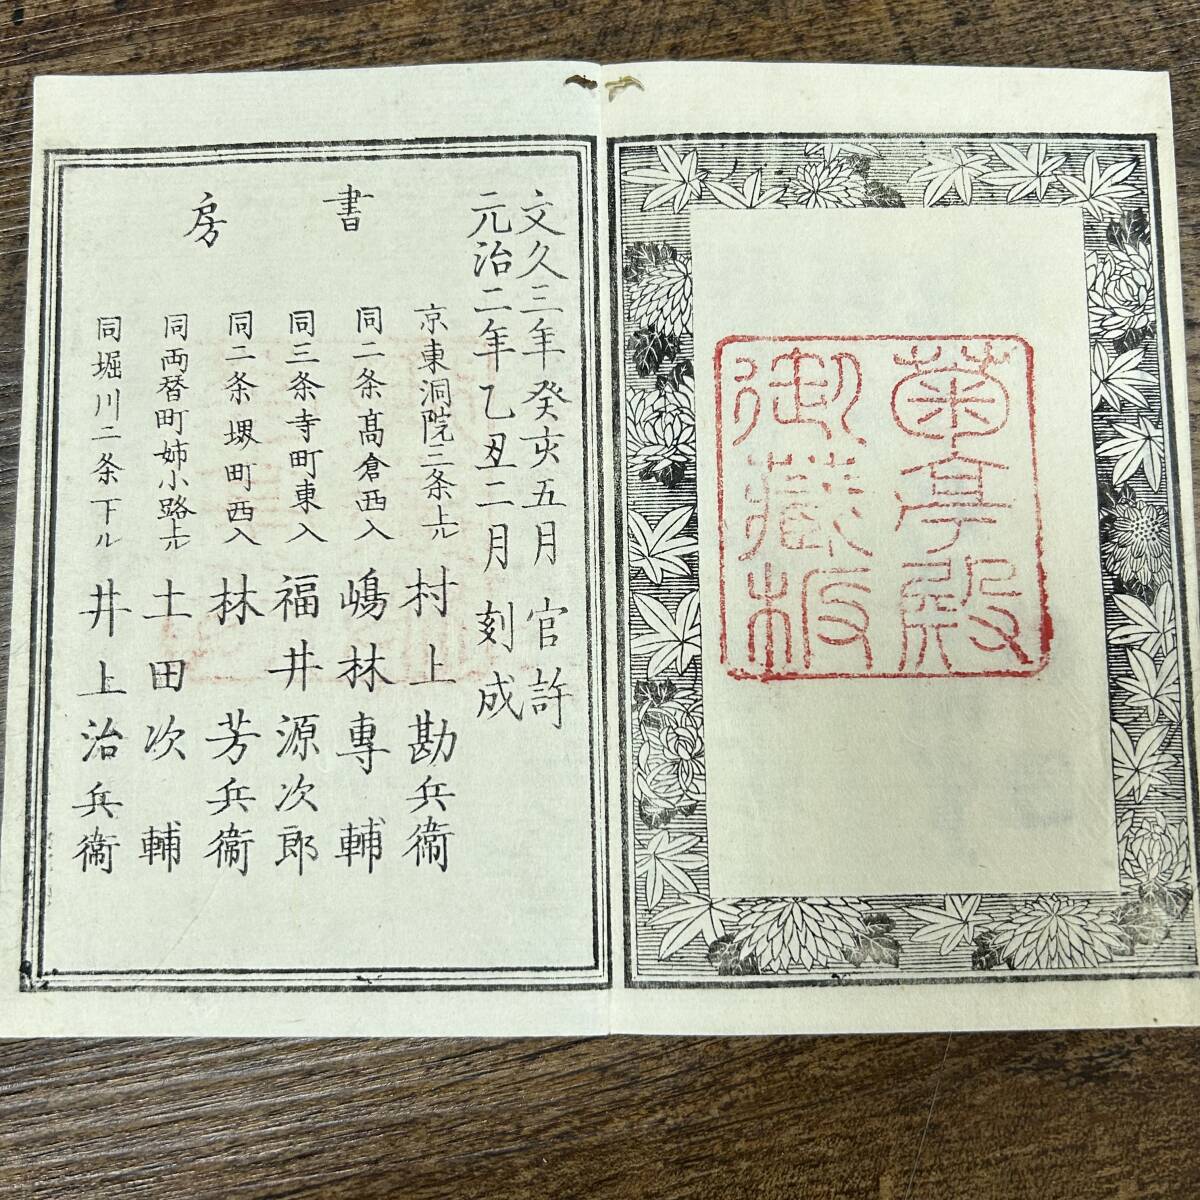 菊亭殿
御蔵板
文久三年癸亥五月官許
元治二年乙丑二月刻成
書房
京東洞院三条上ル 村上勘兵衛
同二条髙倉西入 嶋林専輔
同三条寺町東入 福井源次郎
同二条堺町西入 林芳兵衛
同両替町姉小路上ル 土田次輔
同堀川二条下ル 井上治兵衛